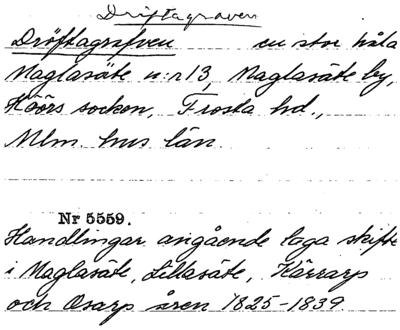 Driftagraven
Dröftagrafven en stor håla
Maglasäte n:r 13, Maglasäte by,
Höörs socken, Frosta hd.,
Mlm. hus län.
Nr 5559.
Handlingar angående laga skifte
i Maglasäte, Lillasäte, Kärrarp
och Osarp åren 1825-1839.